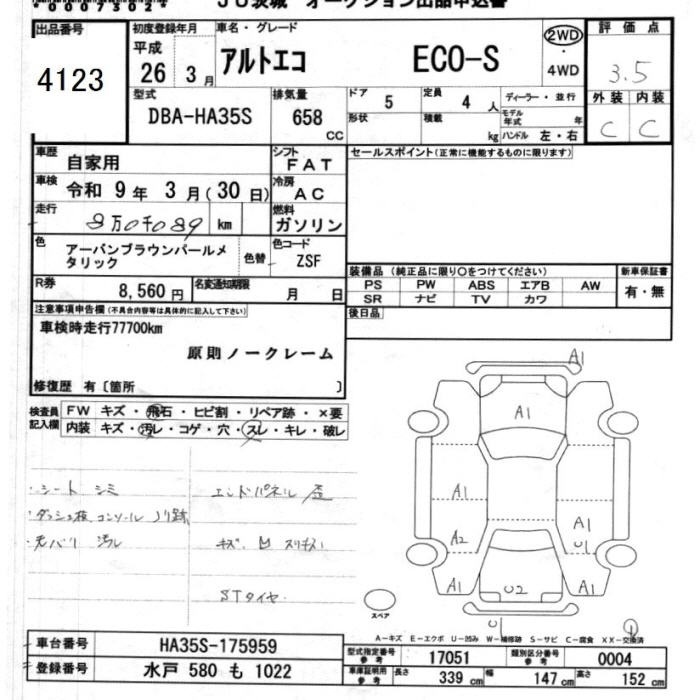 JU茨城 オークション出品申込書
出品番号
4123
初度登録年月
平成
26 3月
車名・グレード
アルトエコ ECO-S
2WD
・
4WD
評価点
3.5
外装 内装
C C
型式
DBA-HA35S
排気量
658
CC
ドア
5
定員
4 人
ディーラー・並行
形状
積載
kg
モデル
年式 年
ハンドル 左・右
車歴
自家用
シフト
FAT
車検
令和 9年 3月(30日)
冷房
AC
走行
8万0千089 km
燃料
ガソリン
色
アーバンブラウンパールメ
タリック
色替
色コード
ZSF
R券
8,560円
名変通知期限
月 日
セールスポイント(正常に機能するものに限ります)
装備品(純正品に限り○をつけてください)
PS PW ABS エアB AW
SR ナビ TV カワ
新車保証書
有・無
後日品
注意事項申告欄(不具合内容等は具体的に記入して下さい)
車検時走行77700km
原則ノークレーム
修復歴 有〔箇所 〕
検査員
記入欄
FW キズ・飛石・ヒビ割・リペア跡・×要
内装 キズ・汚レ・コゲ・穴・スレ・キレ・破レ
・シート シミ
・ダッシュ板、コンソール ノリ跡
・天バリ 汚レ
エンドパネル 歪
キズ、凹 スリキズ
STタイヤ
A1
A1
A1
A1
A2
A1
U1
A1
U2
A1
C
スペア
A-キズ E-エクボ U-凹み W-補修跡 S-サビ C-腐食 XX-交換済
車台番号
HA35S-175959
登録番号
水戸 580 も 1022
型式指定番号
参考
17051
類別区分番号
参考
0004
車庫証明用
参考
長さ
339 cm
幅
147 cm
高さ
152 cm